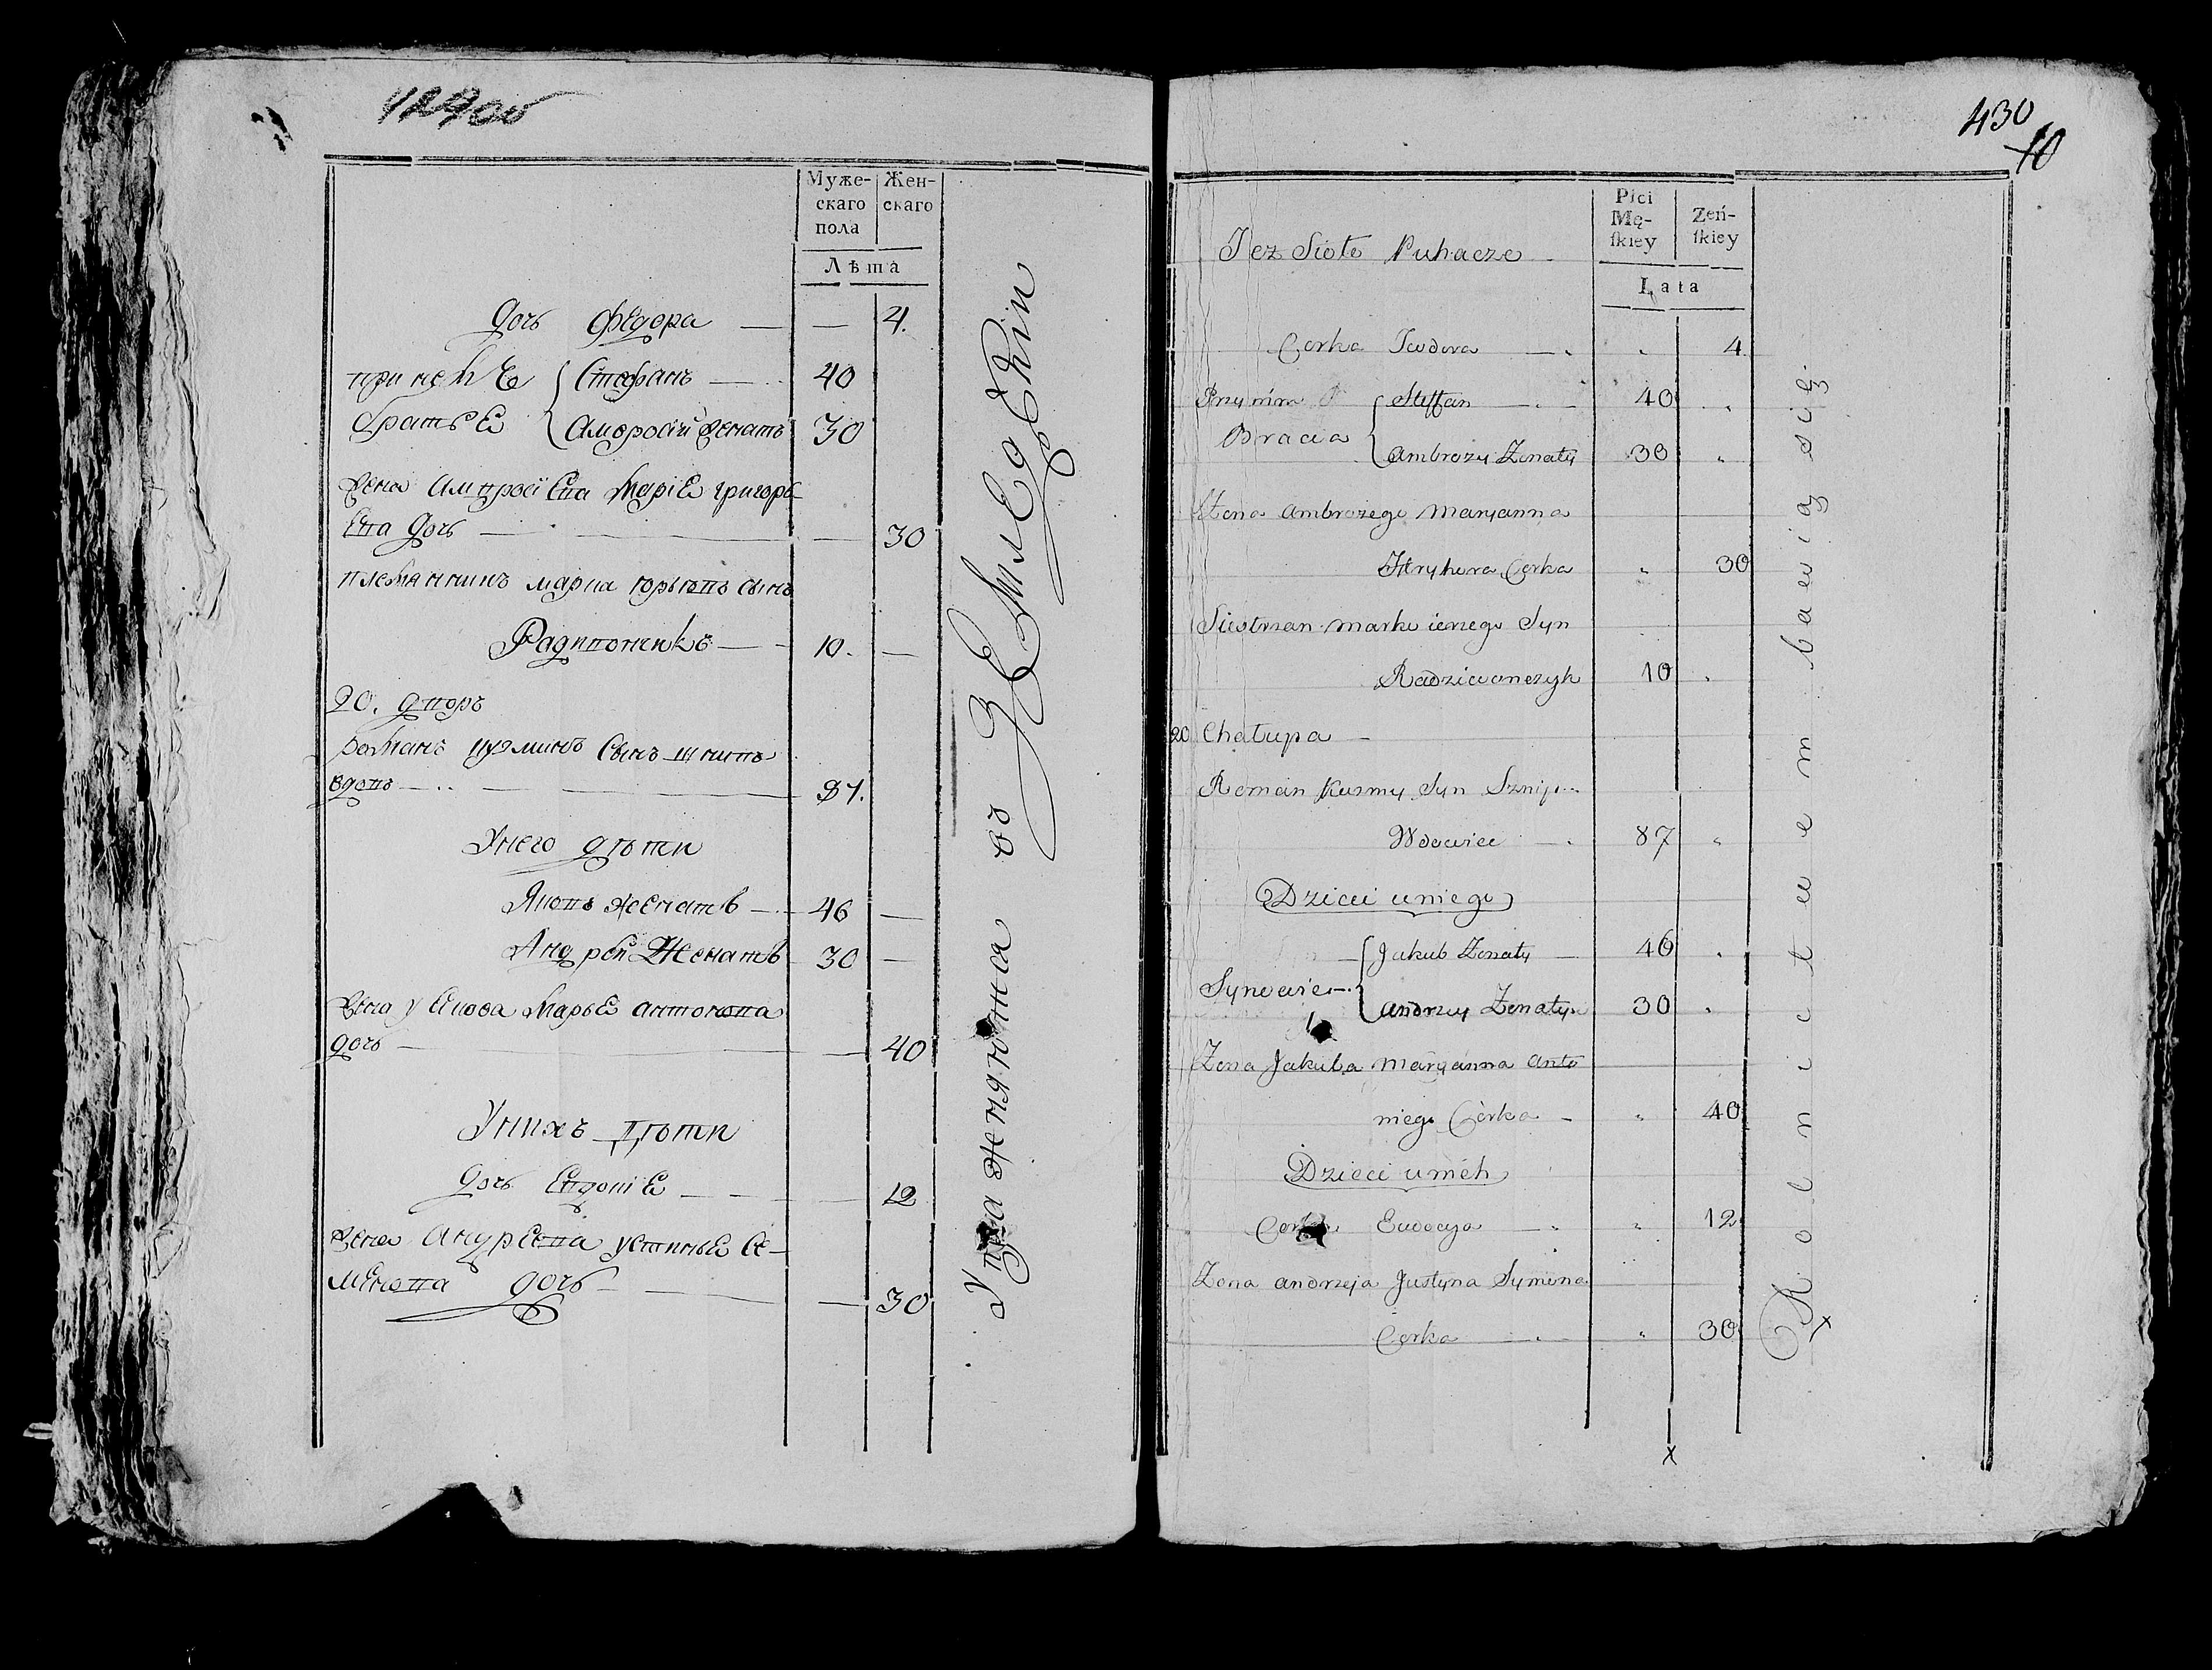 Муже-
скаго
пола
Жен-
скаго
Лѣта
дочь Федора — — 4.
при немъ Стефанъ — 40
братьѣ Амбросій женатъ 30
жена Амвросіева Маріѣ григорь
ева дочь — — 30
племянникъ марка юрьювъ сынъ
Радивончикъ — 10. —
20. дворъ
Романъ кузминъ сынъ шнипъ
вдовъ — 87.
У него дѣти
Яковъ женатъ — 46 —
Андрей Женатъ 30 —
жена у Якова Марьѣ антонова
дочь — — 40
У нихъ Дѣти
дочь Евдокіѣ — — 12
жена Андреева устиньѣ се-
менова дочь — — 30
Упражняютса въ ЗЕМЛЕДЕЛіи
430
10
Płci
Mę-
ſkiey
Zeń-
ſkiey
Lata
Tez Sioło Puhacze
Corka Teodora — „ 4
Przy nim Steffan — 40 „
Bracia Ambrozy Zonaty 30 „
Żona Ambrożego Maryanna
Hryhora Corka „ 30
Siestrzan Marko ierzego Syn
Radziwonczyk 10 „
20 Chałupa —
Roman Kuzmy Syn Sznip
Wdowiec — 87 „
Dzieci u niego
Jakub Zonaty — 46 „
Synowie
Andrzey Zonaty 30 „
Zona Jakuba Maryanna Anto
niego Corka — „ 40
Dzieci u nich
Corka Eudocya — „ 12
Zona Andrzeja Justyna Symona
Corka — „ 30
Rolnictwem bawią się.
x
x